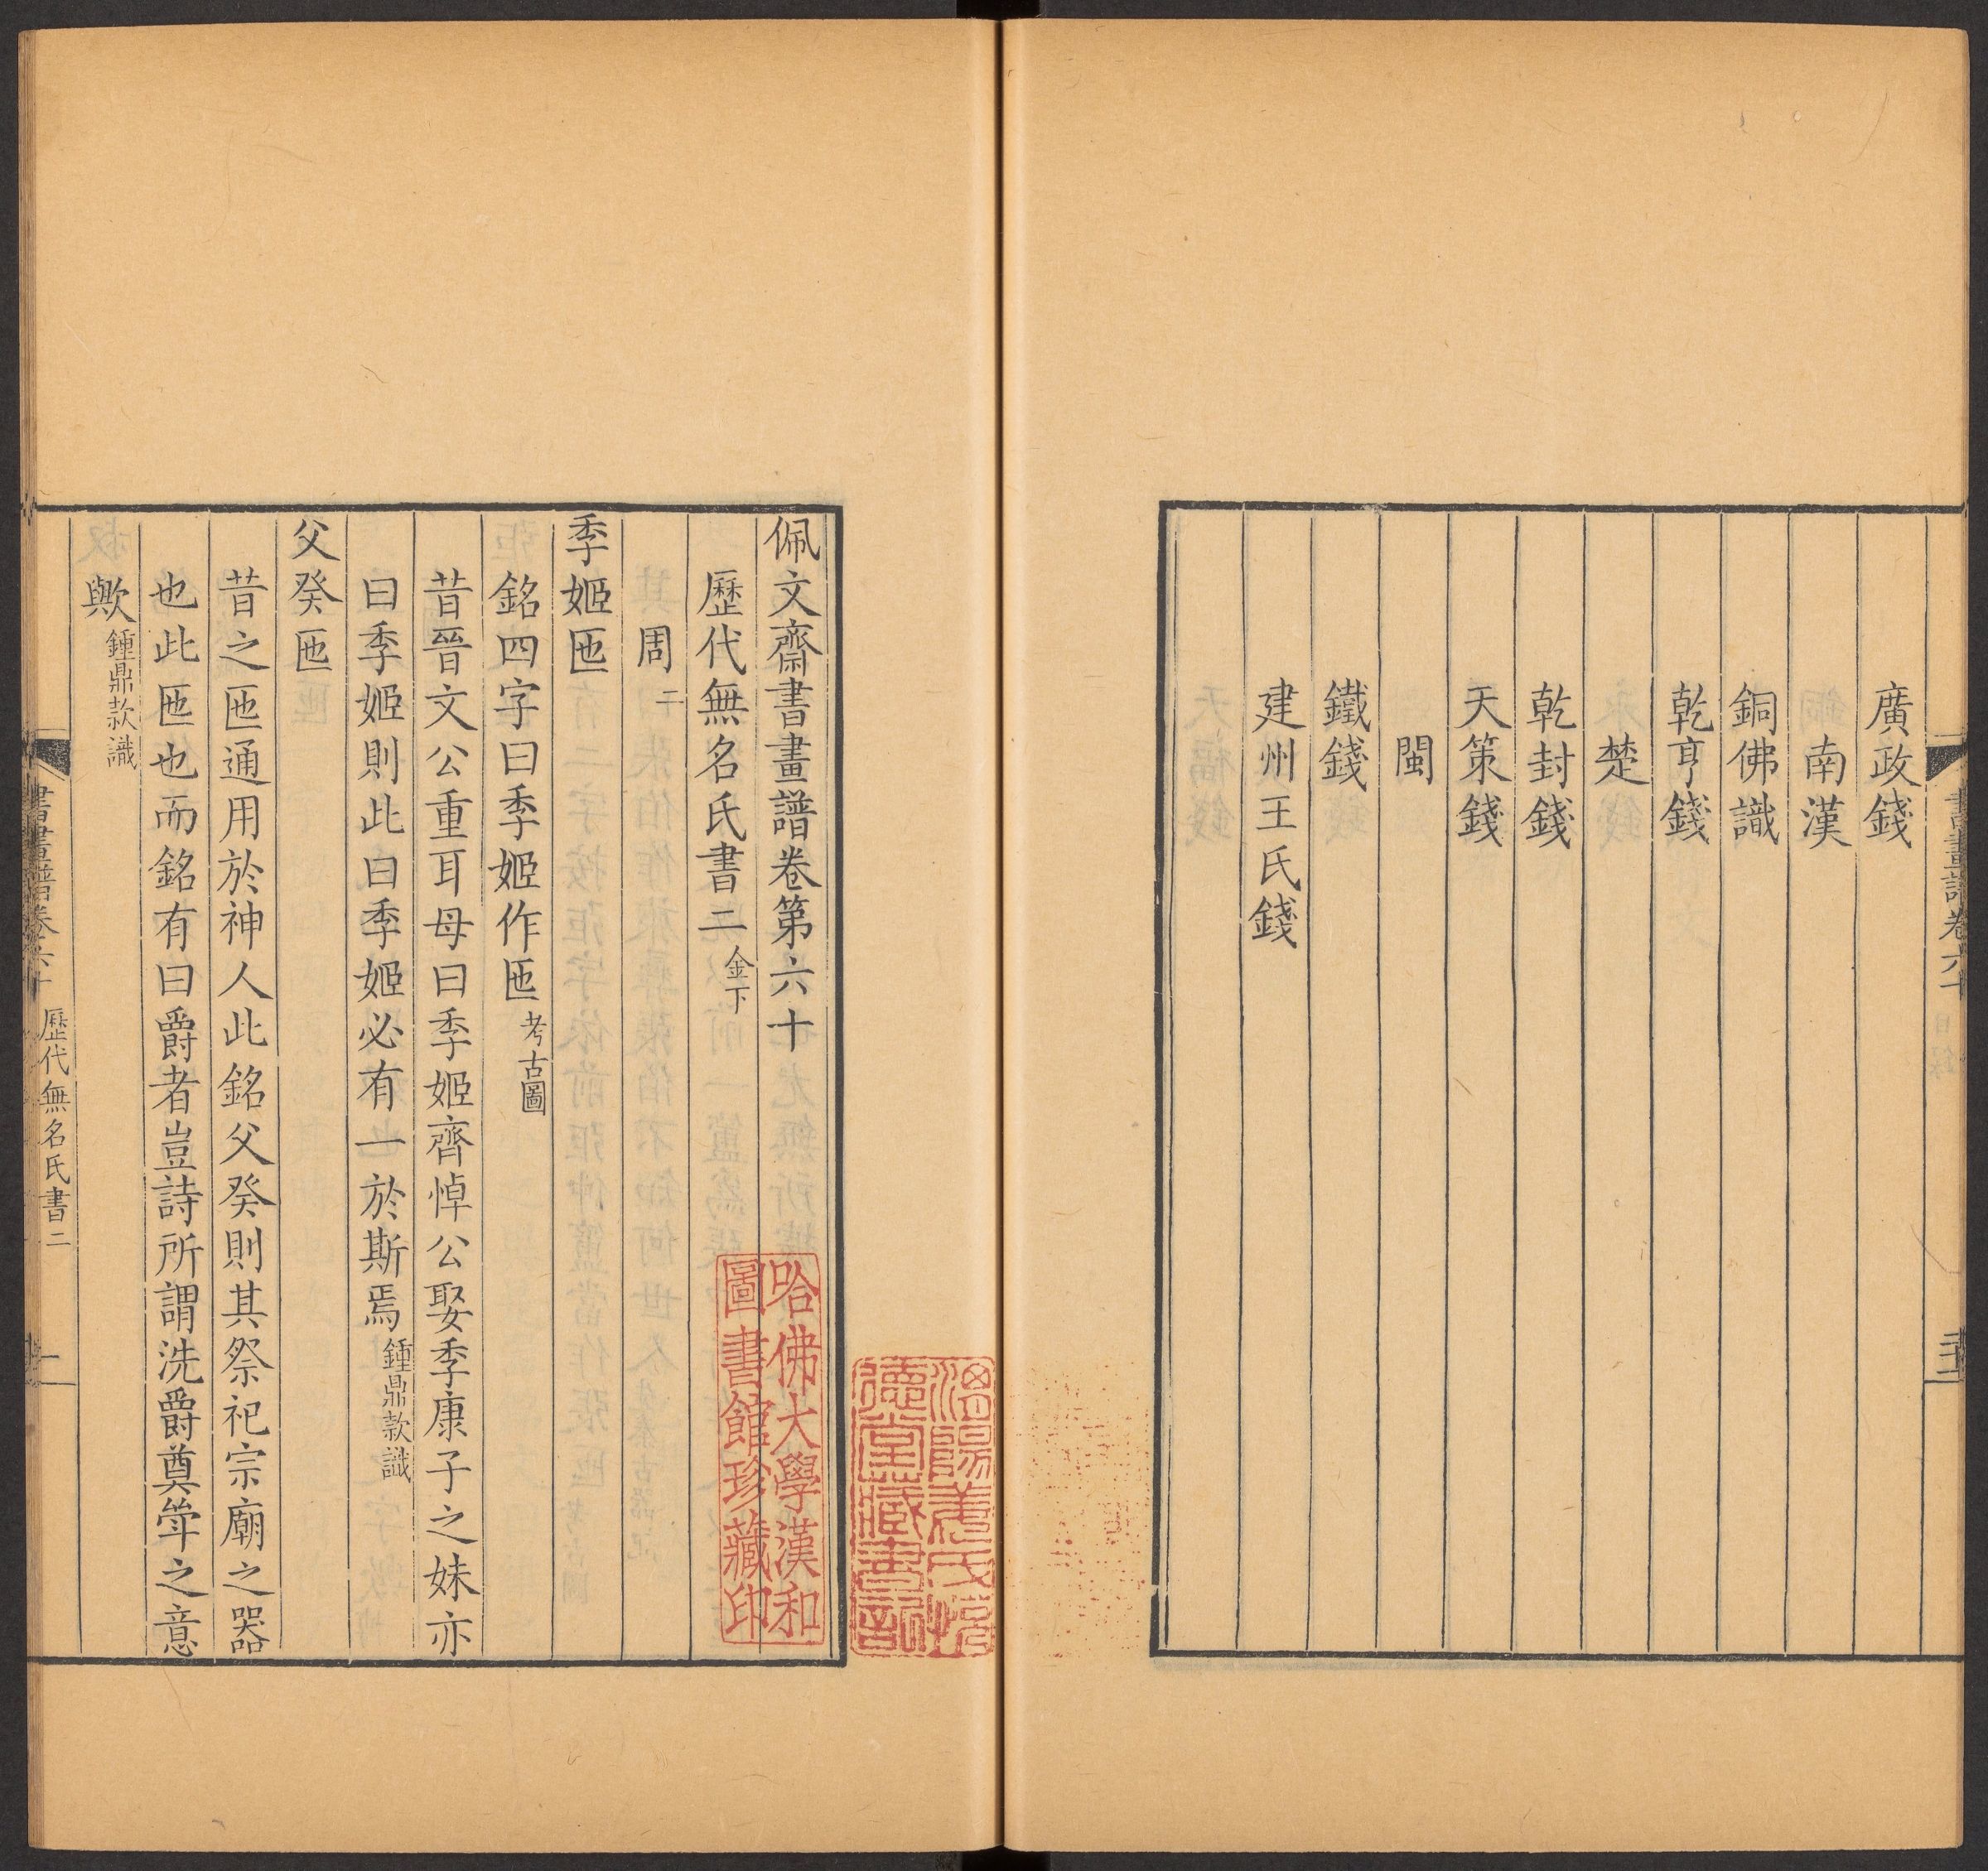 廣政錢
南漢
銅佛識
乾亨錢
楚
乾封錢
天策錢
閩
鐵錢
建州王氏錢
佩文齋書畫譜卷第六十
歷代無名氏書二 金下
周 二
季姬匜
銘四字曰季姬作匜 考古圖
昔晉文公重耳母曰季姬齊悼公娶季康子之妹亦
曰季姬則此曰季姬必有一於斯焉 鍾鼎款識
父癸匜
昔之匜通用於神人此銘父癸則其祭祀宗廟之器
也此匜也而銘有曰爵者豈詩所謂洗爵奠斝之意
歟 鍾鼎款識
書畫譜卷六十 歷代無名氏書二 一
哈佛大學漢和
圖書館珍藏印
德堂藏書記